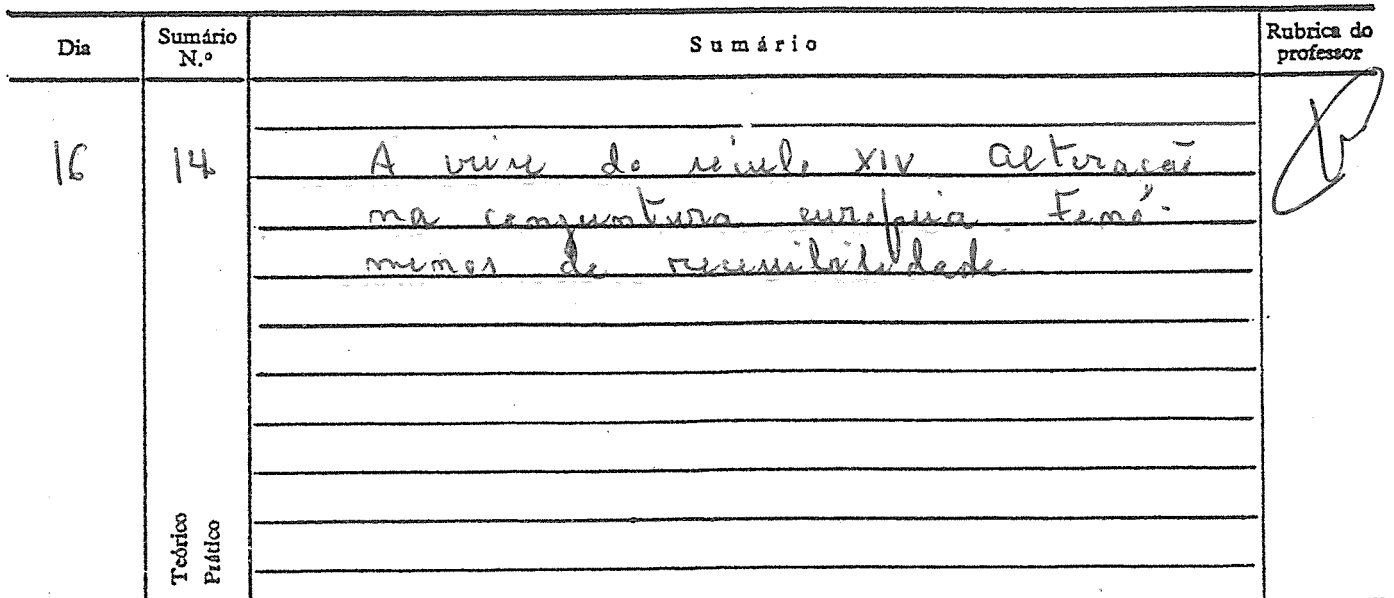 Dia Sumário N.º Sumário Rubrica do professor
16 14 A crise do século XIV Alteração
na conjuntura europeia Fenó-
menos de recessibilidade
Teórico
Prático